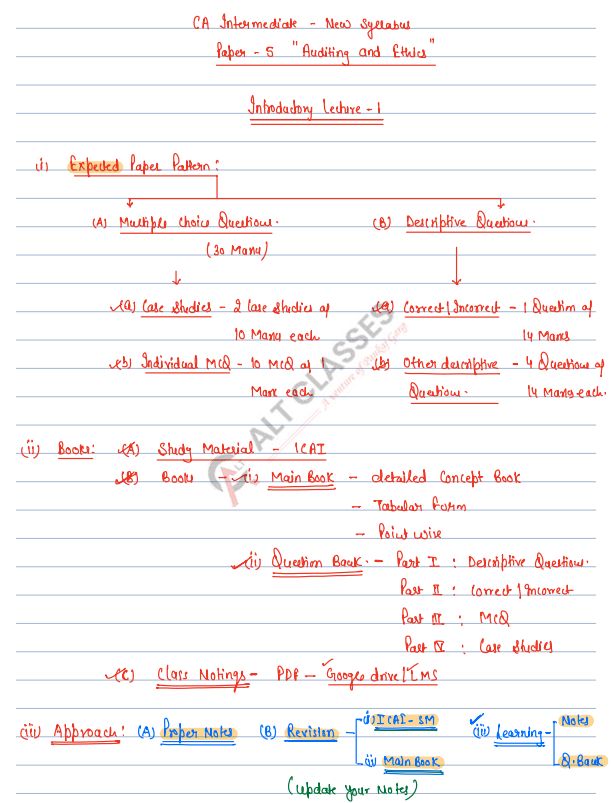 CA Intermediate - New Syllabus
Paper - 5 "Auditing and Ethics"
Introductory Lecture - 1
(i) Expected Paper Pattern :
(A) Multiple Choice Questions. (B) Descriptive Questions.
(30 Marks)
(a) Case Studies - 2 Case Studies of (a) Correct/Incorrect - 1 Question of
10 Marks each 14 Marks
(b) Individual MCQ - 10 MCQ of 1 (b) Other descriptive - 4 Questions of
Mark each Questions. 14 Marks each.
(ii) Books: (A) Study Material - ICAI
(B) Books - (i) Main Book - detailed Concept Book
- Tabular Form
- Point wise
(ii) Question Bank. - Part I : Descriptive Questions.
Part II : Correct/Incorrect
Part III : MCQ
Part IV : Case Studies
(C) Class Notings - PDF - Google drive/LMS
(iii) Approach: (A) Proper Notes (B) Revision - (i) ICAI-SM (iii) Learning - Notes
(ii) Main Book Q.Bank
(Update your Notes)
ALT CLASSES
A venture of Pankaj Garg